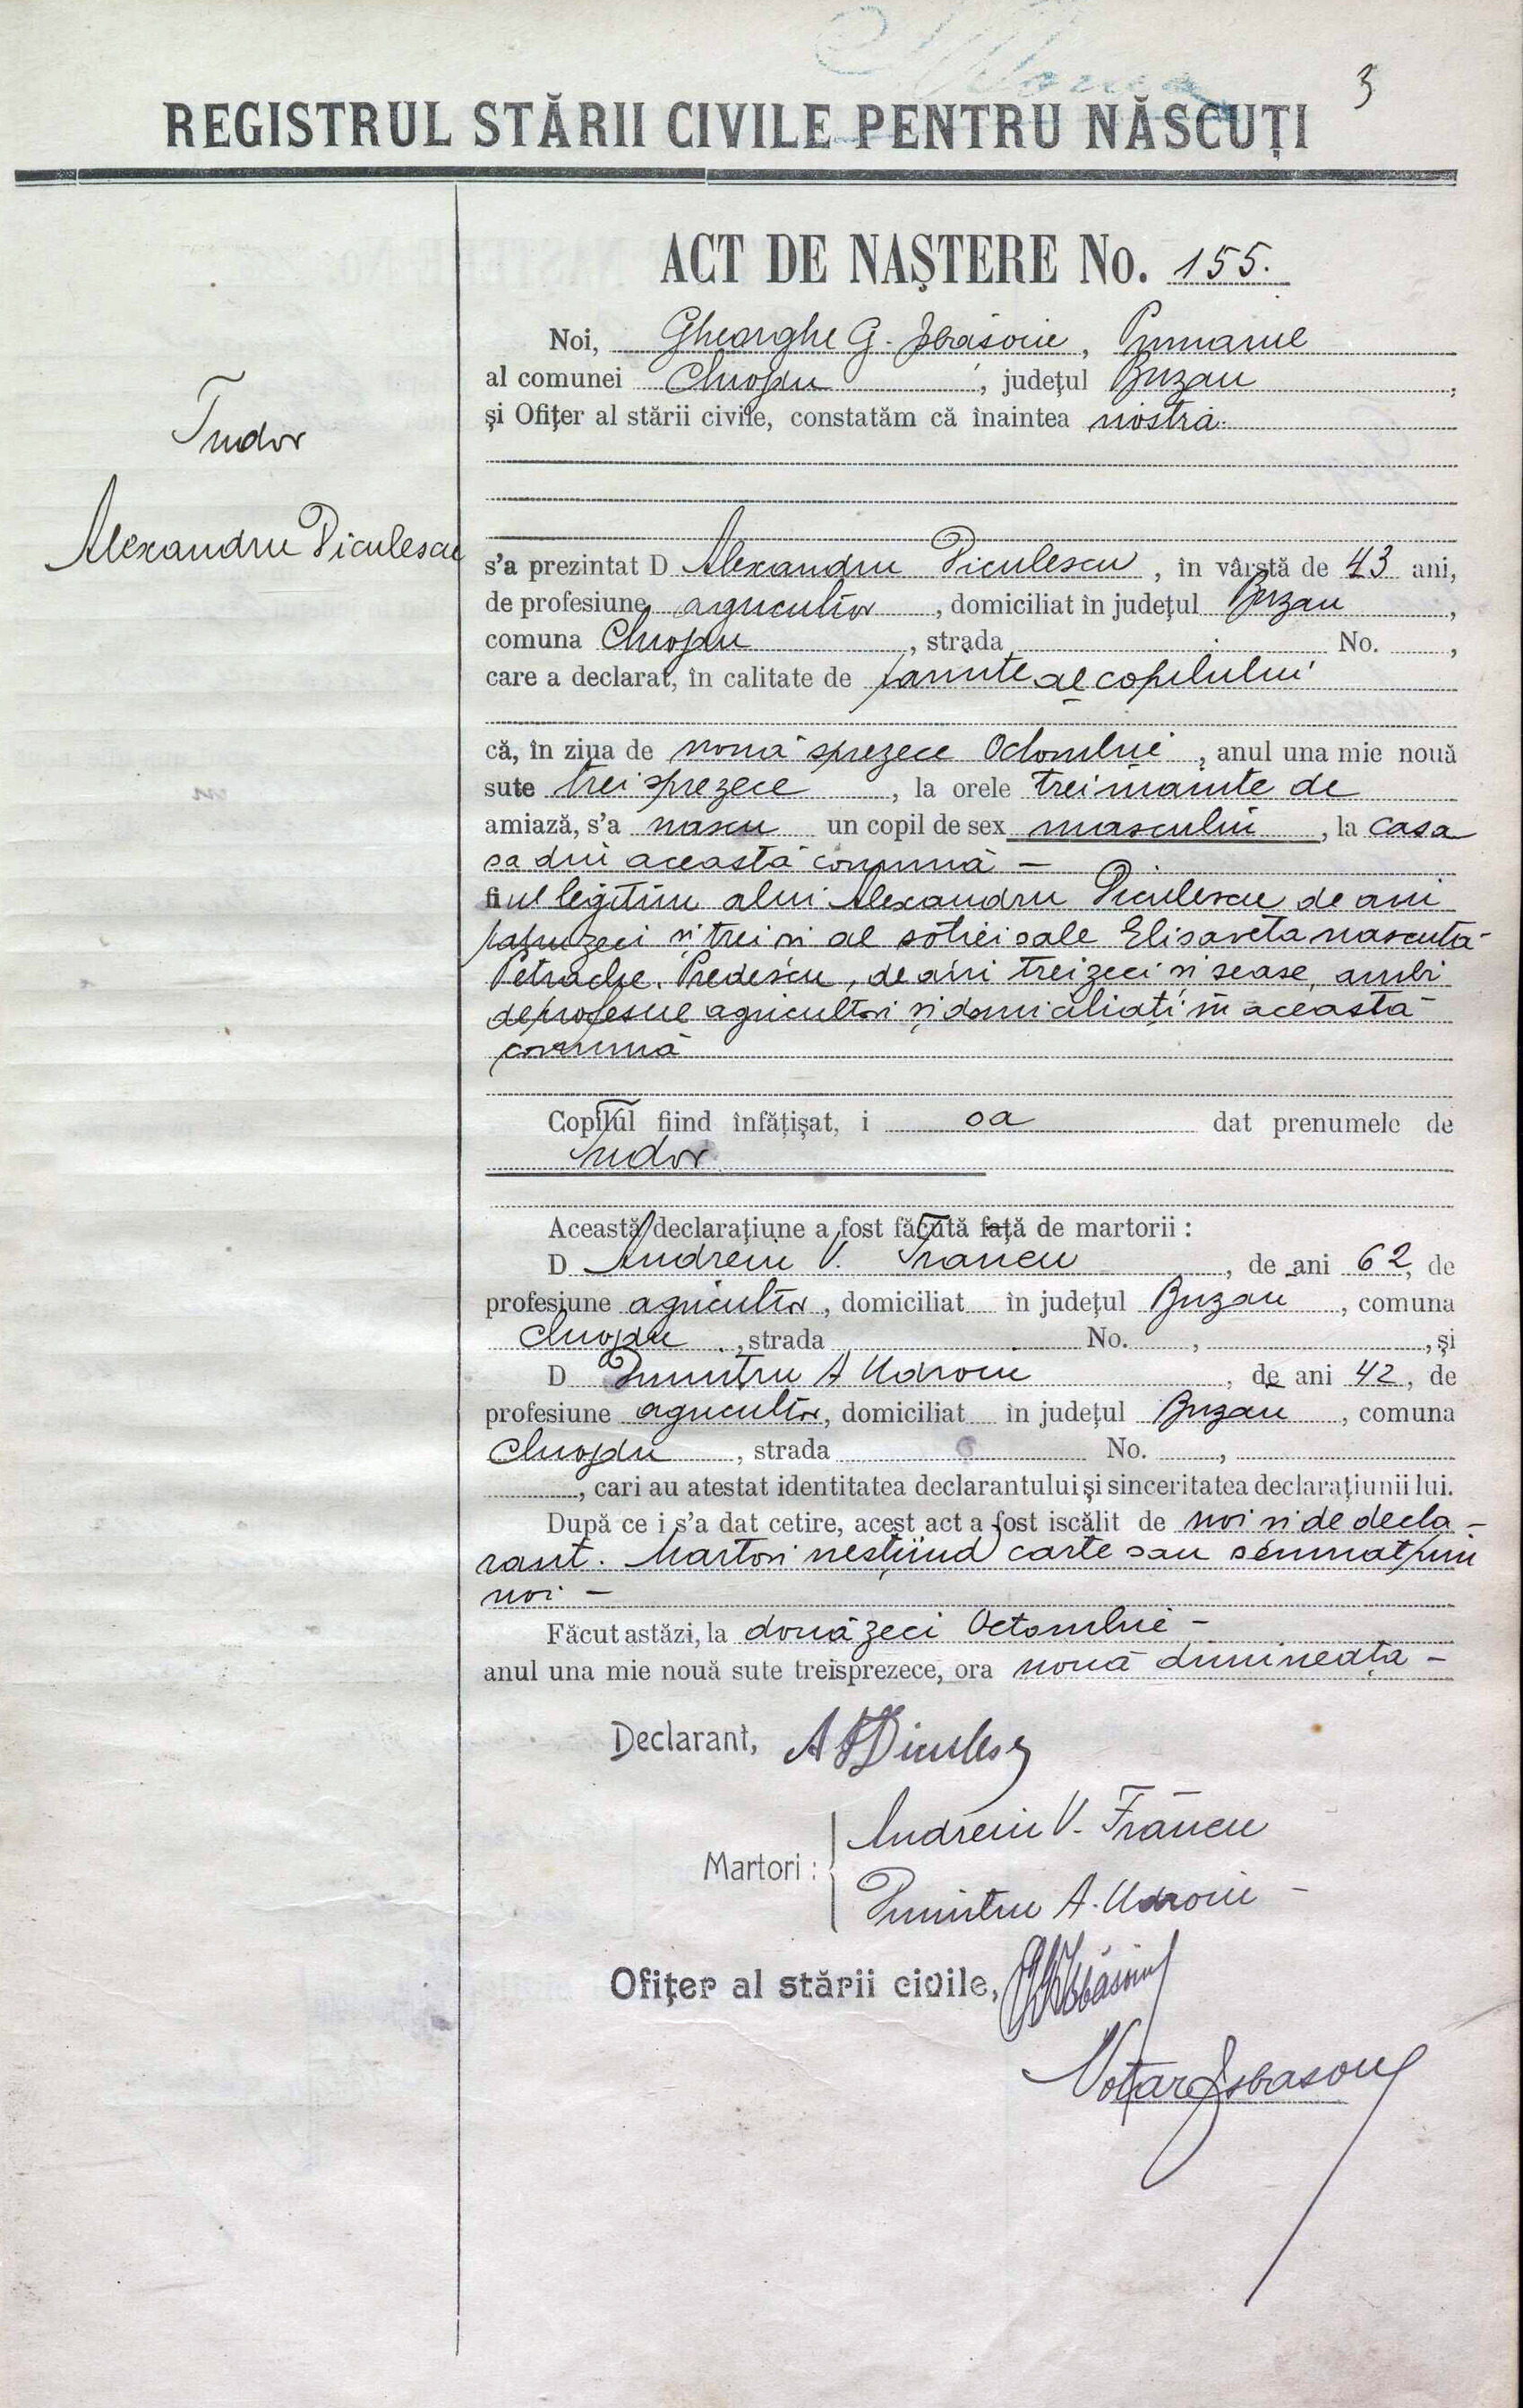 3
REGISTRUL STĂRII CIVILE PENTRU NĂSCUȚI
ACT DE NAȘTERE No. 155.
Noi, Gheorghe G. Isbăsoiu, Primarul
al comunei Chiojdu, județul Buzau,
și Ofițer al stării civile, constatăm că înaintea nostră.
Tudor
Alexandru Diculescu
s'a prezintat D Alexandru Diculescu, în vârstă de 43 ani,
de profesiune agricultor, domiciliat în județul Buzau,
comuna Chiojdu, strada No. ,
care a declarat, în calitate de parinte al copilului
că, în ziua de nouă sprezece Octombrie, anul una mie nouă
sute trei sprezece, la orele trei inainte de
amiază, s'a nascu un copil de sex masculin, la casa
sa din această comună —
fiul legitim alui Alexandru Diculescu de ani
patruzeci și trei si al soției sale Elisaveta nascută
Petrache Predescu, de ani treizeci și sease, ambi
de profesie agricultori și domiciliați în această
comună
Copilul fiind înfățișat, i sa dat prenumele de
Tudor
Această declarațiune a fost făcută față de martorii :
D Andreiu V. Francu, de ani 62, de
profesiune agricultor, domiciliat în județul Buzau, comuna
Chiojdu, strada No. , , și
D Dumitru A Udroiu, de ani 42, de
profesiune agricultor, domiciliat în județul Buzau, comuna
Chiojdu, strada No. ,
, cari au atestat identitatea declarantului și sinceritatea declarațiunii lui.
După ce i s'a dat cetire, acest act a fost iscălit de noi si de decla-
rant. Martori neștiind carte sau semnat prin
noi —
Făcut astăzi, la două zeci Octombrie —
anul una mie nouă sute treisprezece, ora nouă dimineața —
Declarant, A Diculescu
Andreiu V. Frâncu
Martori :
Dumitru A. Udroiu —
Ofițer al stării civile, Isbăsoiu
Notar Isbasoiu